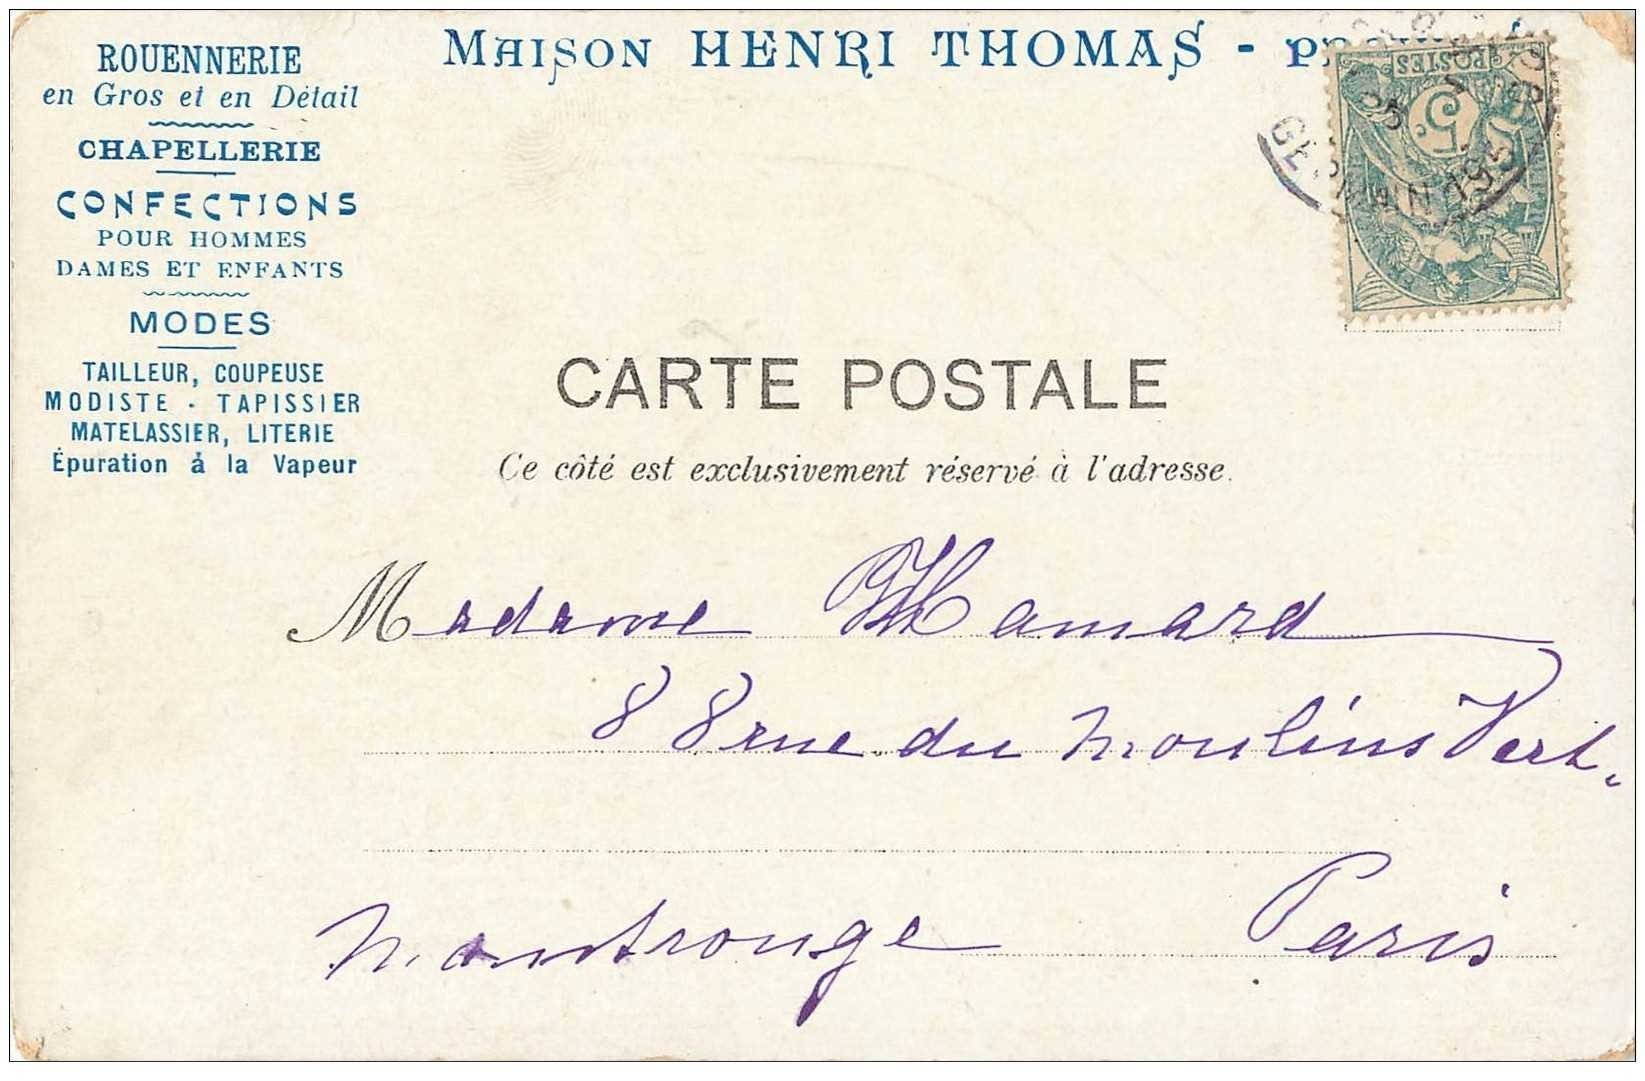 ROUENNERIE
en Gros et en Détail
CHAPELLERIE
CONFECTIONS
POUR HOMMES
DAMES ET ENFANTS
MODES
TAILLEUR, COUPEUSE
MODISTE - TAPISSIER
MATELASSIER, LITERIE
Épuration à la Vapeur
MAISON HENRI THOMAS -
POSTES
5
CARTE POSTALE
Ce côté est exclusivement réservé à l'adresse.
Madame Hamard
88 rue du Moulins Vert.
Montrouge Paris